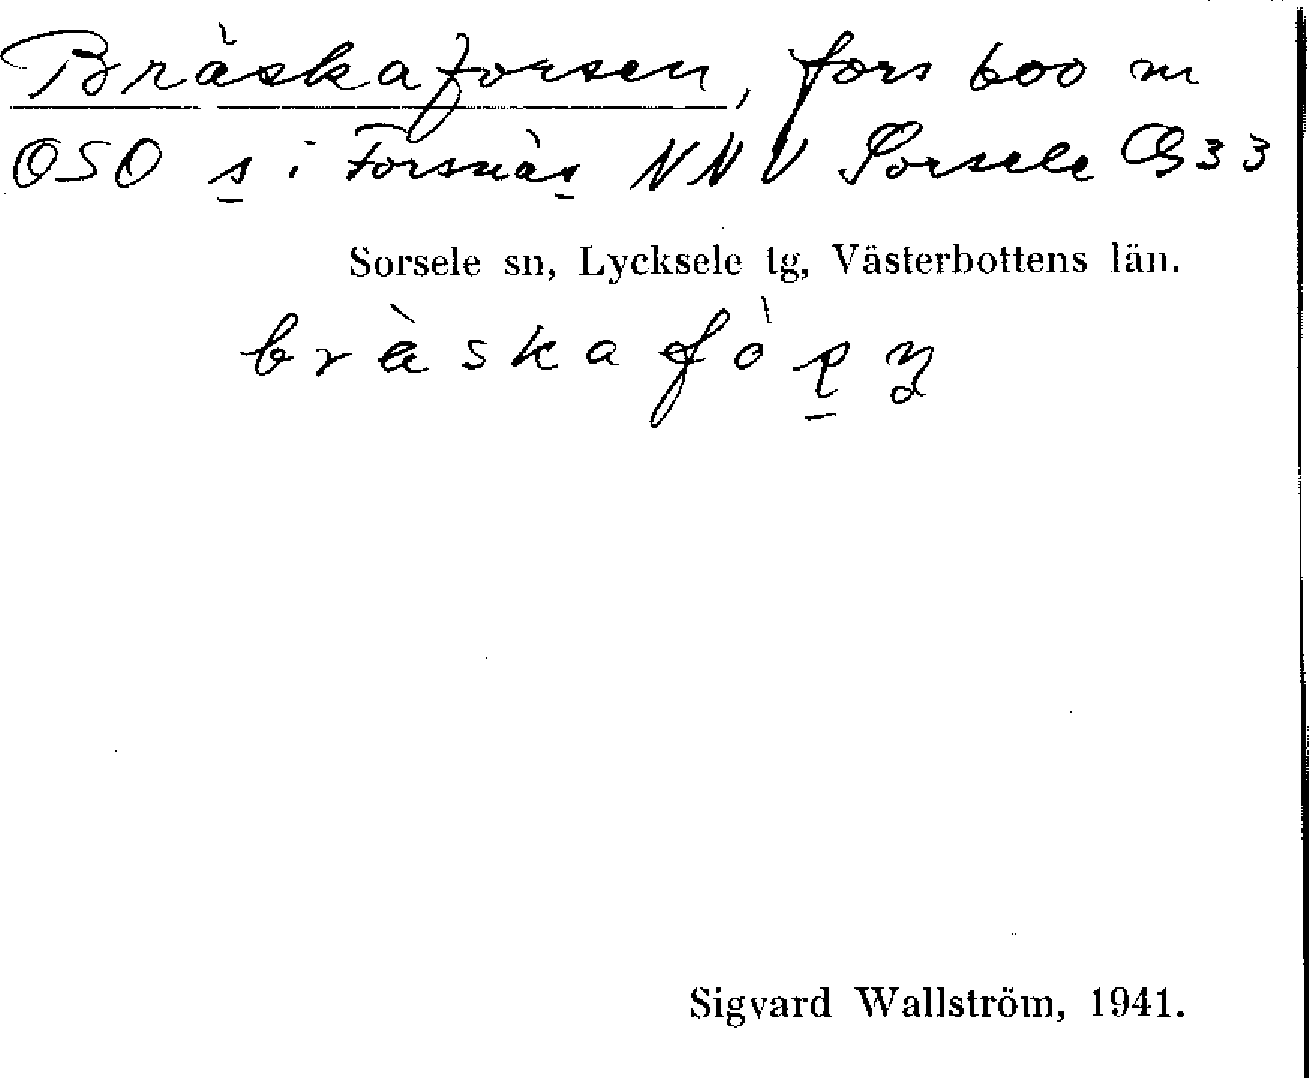 Bräskaforsen, fors 600 m
OSO s i Forsnäs NNV Sorsele G33
Sorsele sn, Lycksele tg, Västerbottens län.
Sigvard Wallström, 1941.